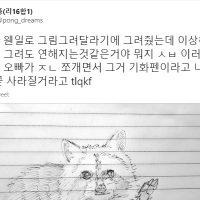 (리16합1)
@pong_dreams
웬일로 그림그려달라기에 그려줬는데 이상
그려도 연해지는것같은거야 뭐지 ㅅㅂ 이러
오빠가 ㅈㄴ 쪼개면서 그거 기화펜이라고 ㄴ
사라질거라고 tlqkf
weet